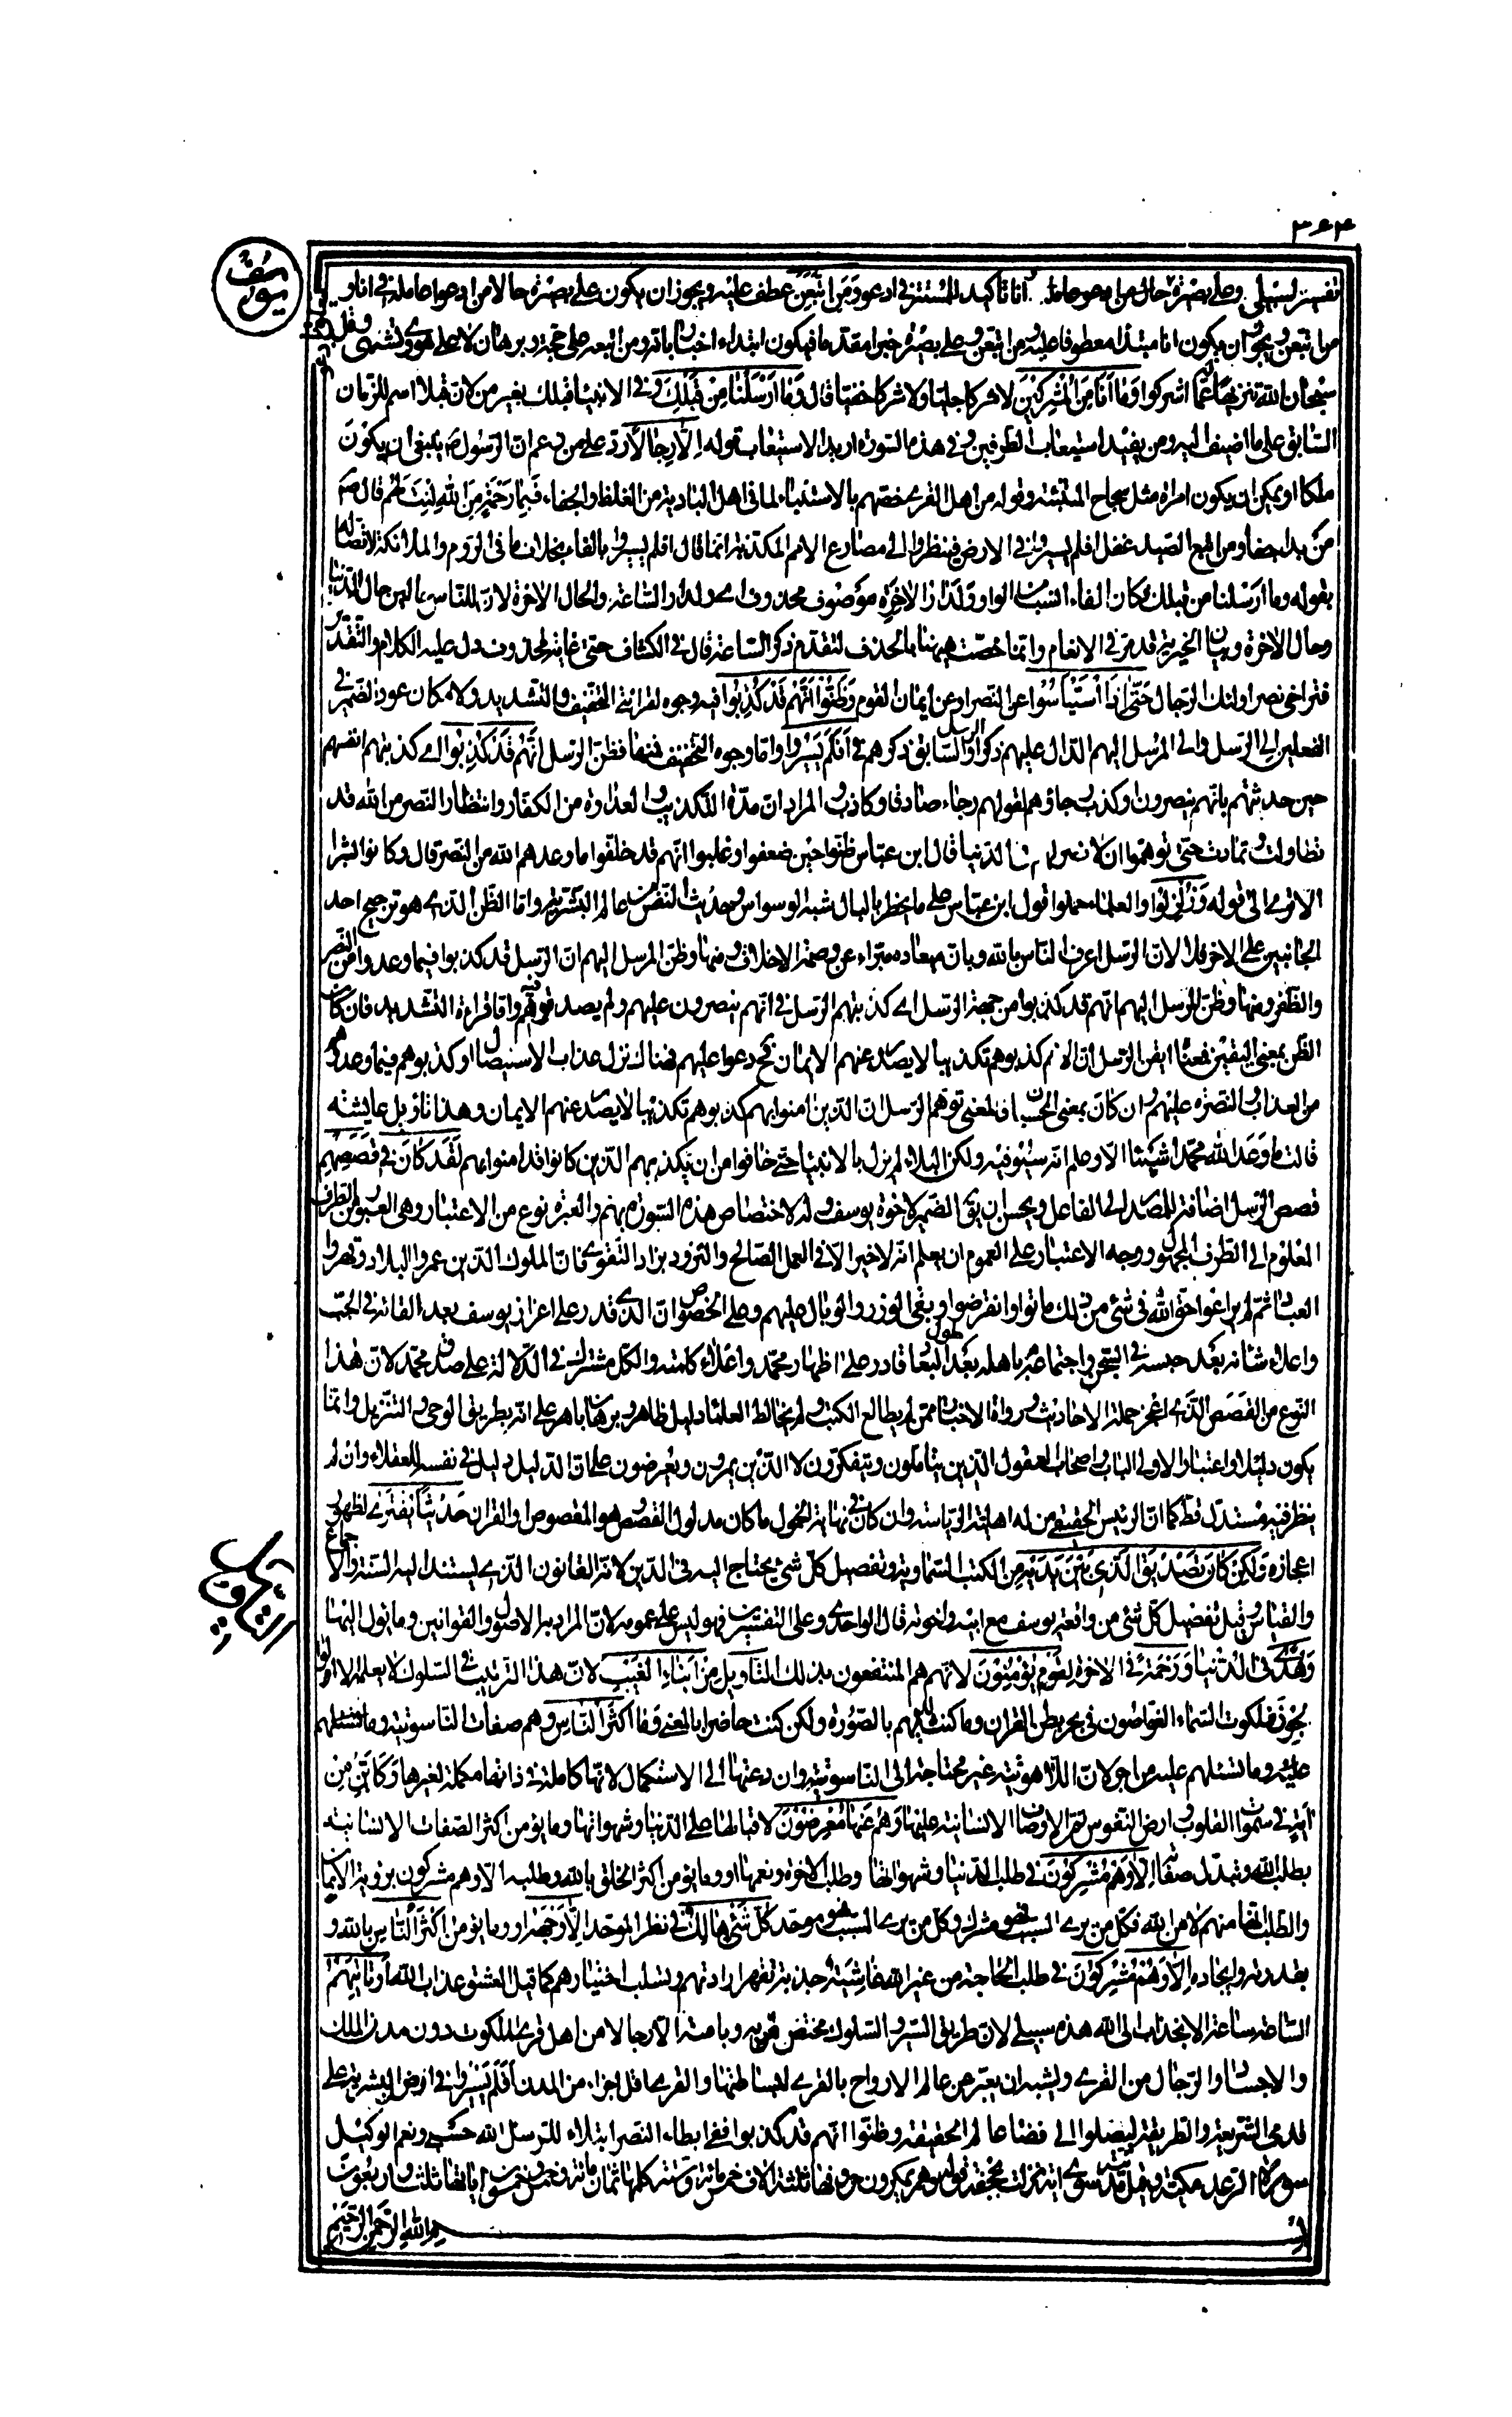 ٣٦٤
يوسف
تفسير لسبيلي وعلى بصيرة حال من ادعو عاملة انا تاكيد للمستتر في ادعو ومن اتبعن عطف عليه ويجوز ان يكون على بصيرة حالا من ادعوا عاملة في انا و
من اتبعن ويجوز ان يكون انا مبتدأ معطوفا عليه من اتبعن وعلى بصيرة خبرا مقدما فيكون ابتداء اخبار بانه ومن اتبعه على حجة وبرهان لا على هوى وتشهى وقل
سبحان الله تنزيها عما اشركوا وما انا من المشركين لا شركا جليا ولا شركا خفيا قال وما ارسلنا من قبلك وفي الانبيا قبلك بغير من لان قبلا اسم للزمان
السابق على ما اضيف اليه ومن يفيد استيعاب الطرفين وفي هذه السورة اريد الاستيعاب قوله الا رجالا رد على من زعم ان الرسول ينبغى ان يكون
ملكا او يمكن ان يكون امراة مثل سجاح المتنبئة وقوله من اهل القرى خصهم بالاستنباء لما في اهل البادية من الغلظ والجفاء فبما رحمة من الله لنت لهم قال
من بدا جفا ومن اتبع الصيد غفل افلم يسيروا في الارض فينظروا الى مصارع الامم المكذبة انما قال افلم يسيروا بالفاء بخلاف ما في الروم والملائكة لاتصاله
بقوله وما ارسلنا من قبلك فكان الفاء انسب من الواو ولدار الاخرة موصوف محذوف اى ولدار الساعة والحال الاخرة لان للناس حالين حال الدنيا
وحال الاخرة وبيان الخيرية قد مر في الانعام وانما خصت ههنا بالحذف لتقدم ذكر الساعة قال في الكشاف حتى غاية لمحذوف دل عليه الكلام والتقدير
فتراخى نصر اولئك الرجال حتى اذا استيأسوا عن النصر او عن ايمان القوم وظنوا انهم قد كذبوا فيه وجوه لقرائتي التخفيف والتشديد ولامكان عود الضمير في
الفعلين الى الرسل والى المرسل اليهم الدال عليهم ذكر الرسل او السابق ذكرهم في افلم يسيروا واما وجوه التخفيف فمنها فظن الرسل انهم قد كذبوا اى كذبتهم انفسهم
حين حدثتهم بانهم ينصرون او كذب رجاؤهم لقولهم رجاء صادق وكاذب والمراد ان مدة التكذيب والعداوة من الكفار وانتظار النصر من الله قد
تطاولت وتمادت حتى توهموا ان لا نصر لهم في الدنيا قال ابن عباس ظنوا حين ضعفوا وغلبوا انهم قد خلفوا ما وعدهم الله من النصر قال وكانوا بشرا
الا ترى الى قوله وزلزلوا والعلماء حملوا قول ابن عباس على ما يخطر بالبال شبه الوسواس وحديث النفس من عالم البشرية واما الظن الذى هو ترجيح احد
الجانبين على الاخر فلا لان الرسل اعرف الناس بالله وبان ميعاده مبراء عن وصمة الاخلاف ومنها وظن المرسل اليهم ان الرسل قد كذبوا فيما وعدوا من النصر
والظفر ومنها وظن المرسل اليهم انهم قد كذبوا من جهة الرسل اى كذبتهم الرسل في انهم ينصرون عليهم ولم يصدقوهم واما قراءة التشديد فان كان
الظن بمعنى اليقين فمعناه ايقن الرسل ان الامم كذبوهم تكذيبا لا يصدر عنهم الايمان فح دعوا عليهم فهناك نزل عذاب الاستيصال او كذبوهم فيما وعدوهم
من العذاب والنصرة عليهم وان كان بمعنى الحسبان فالمعنى توهم الرسل ان الذين امنوا بهم كذبوهم تكذيبا لا يصدر عنهم الايمان وهذا تاويل عايشه
قالت ما وعد الله محمدا شيئا الا وعلم انه سيوفيه ولكن البلاء لم يزل بالانبيا حتى خافوا من ان يكذبهم الذين كانوا قد امنوا بهم لقد كان في قصصهم
قصص الرسل اضافة للمصدر الى الفاعل ويحسن ان يقال الضمير لاخوة يوسف وله لاختصاص هذه السورة بهم والعبرة نوع من الاعتبار وهى العبور من الطرف
المعلوم الى الطرف المجهول ووجه الاعتبار على العموم ان يعلم انه لا خير الا في العمل الصالح والتزود بزاد التقوى فان الملوك الذين عمروا البلاد وقهروا
العباد ثم لم يراعوا حق الله في شئ من ذلك ماتوا وانقرضوا وبقى الوزر والوبال عليهم وعلى الخصوص ان الذى قدر على اعزاز يوسف بعد القائه في الجب
واعلاء شانه بعد حبسه في السجن واجتماعه باهله بعد طول البعاد قادر على اظهار محمد واعلاء كلمته والكل مشترك في الدلالة على صدق محمد لان هذا
النوع من القصص الذى اعجز حملة الاحاديث ورواة الاخبار ممن لم يطالع الكتب ولم يخالط العلماء دليل ظاهر وبرهان باهر على انه بطريق الوحى والتنزيل وانما
يكون دليلا واعتبارا لاولى الالباب اصحاب العقول الذين يتاملون ويتفكرون لا الذين يمرون ويعرضون على ان الدليل دليل في نفسه للعقلاء وان لم
ينظر فيه مستدل قط كما ان الرئيس الحقيقى من له اهلية الرياسة وان كان في نهاية الخمول ما كان مدلول القصص هو المقصوص او القران حديثا يفترى لظهور
اعجازه ولكن كان تصديق الذي بين يديه من الكتب السماوية وتفصيل كل شئ يحتاج اليه في الدين لانه القانون الذى يستند اليه السنة والاجماع
والقياس وقيل تفصيل كل شئ من واقعة يوسف مع ابيه واخوته قال الواحدى وعلى التفسيرين فهو ليس على عمومه لان المراد به الاصول والقوانين وما يؤل اليهما
وهدى في الدنيا ورحمة في الاخرة لقوم يؤمنون لانهم هم المنتفعون بذلك التاويل من انباء الغيب لان هذا الترتيب في السلوك لا يعلمه الا
التاويل
ملكوت السماء الغواصون في بحر بطن القران وما كنت لديهم بالصورة ولكن كنت حاضرا بالمعنى وما اكثر الناس وهم صفات الناسوتية وما تسئلهم
عليه وما تسئلهم عليه من اجر لان اللاهوتية غير محتاجة الى الناسوتية وان دعتها الى الاستكمال لانها كاملة في ذاتها مكملة لغيرها وكاين من
اية في سموات القلوب وارض النفوس تمر الاوصاف الانسانية عليها وهم عنها معرضون لاقبالها على الدنيا وشهواتها وما يؤمن اكثر الصفات الانسانية
بطلب الله وتبدل صفاته الا وهم مشركون في طلب الدنيا وشهواتها وطلب الاخرة ونعيمها او وما يؤمن اكثر الخلق بالله وطلبه الا وهم مشركون برؤية الايمان
والطلب انها منهم لا من الله فكل من يرى السبب فهو مشرك وكل من يرى المسبب فهو موحد كل شئ هالك في نظر الموحد الا وجهه او وما يؤمن اكثر الناس بالله و
بقدرته وايجاده الا وهم مشركون في طلب الحاجة من غير الله غاشية جذبة تقهر ارادتهم وتسلب اختيارهم كما قيل العشق عذاب الله او تاتيهم
الساعة ساعة الانجذاب الى الله هذه سبيلي لان طريق السير والسلوك مختص به وبامته الا رجالا من اهل قرى الملكوت دون مدن الملك
والاجساد والرجال من القرى ويشبه ان يعبر عن عالم الارواح بالقرى لبساطتها والقرى اقل اجزاء من المدن افلم يسيروا في ارض البشرية على
قدمى الشريعة والطريقة ليصلوا الى فضاء عالم الحقيقة وظنوا انهم قد كذبوا ففي ابطاء النصر ابتلاء للرسل الله حسبى ونعم الوكيل
سورة الرعد مكية وقيل مدنية سوى اية نزلت بجحفة حروفها ثلثة الاف خمسمائة وستة كلمها ثمان مائة وخمس وخمسون اياتها ثلث واربعون
بسم الله الرحمن الرحيم